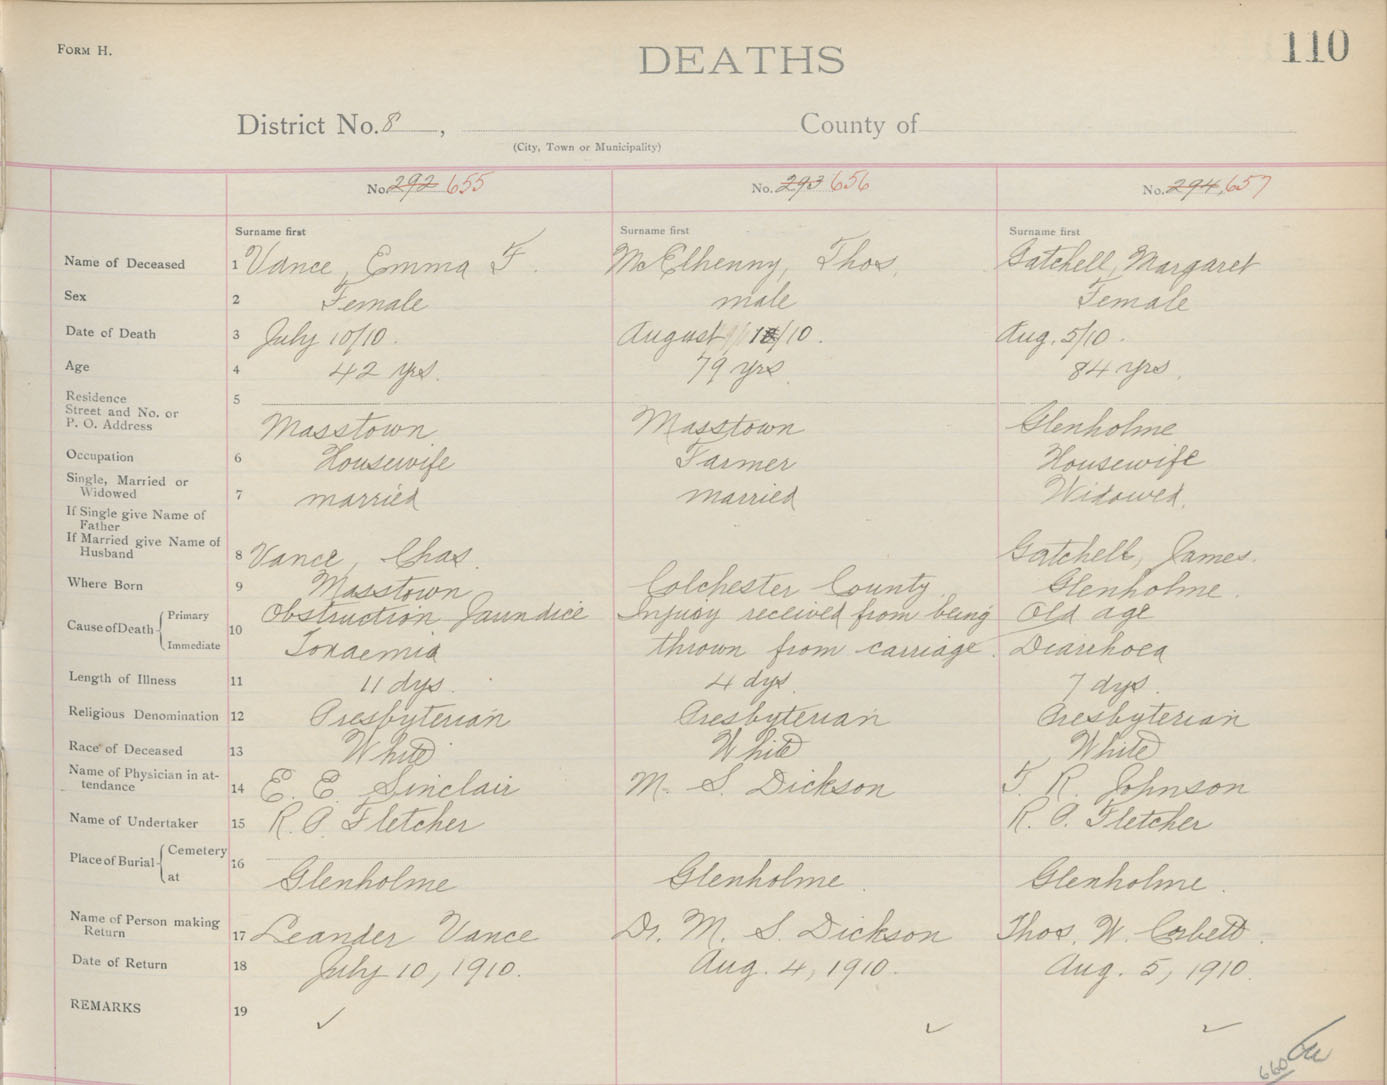 FORM H.
110
DEATHS
District No. 8, County of
(City, Town or Municipality)
No. 292 655 No. 293 656 No. 294, 657
Surname first Surname first Surname first
Name of Deceased 1 Vance, Emma F. McElhenny, Thos, Gatchell, Margaret
Sex 2 Female male Female
Date of Death 3 July 10/10. August /10. Aug. 5/10.
Age 4 42 yrs. 79 yrs. 84 yrs.
Residence 5
Street and No. or
P. O. Address Masstown Masstown Glenholme
Occupation 6 Housewife Farmer Housewife
Single, Married or
Widowed 7 married married Widowed.
If Single give Name of
Father
If Married give Name of
Husband 8 Vance, Chas. Gatchell, James.
Where Born 9 Masstown Colchester County. Glenholme.
Cause of Death Primary 10 Obstruction Jaundice Injury received from being Old age
Immediate Toxaemia thrown from carriage. Diarrhoea
Length of Illness 11 11 dys. 4 dys. 7 dys.
Religious Denomination 12 Presbyterian Presbyterian Presbyterian
Race of Deceased 13 White White White
Name of Physician in at-
tendance 14 E. E. Sinclair M. S. Dickson T. R. Johnson
Name of Undertaker 15 R. O. Fletcher R. O. Fletcher
Place of Burial Cemetery 16
at Glenholme Glenholme. Glenholme.
Name of Person making
Return 17 Leander Vance Dr. M. S. Dickson Thos. W. Corbett.
Date of Return 18 July 10, 1910. Aug. 4, 1910. Aug. 5, 1910.
REMARKS 19 ✓ ✓ ✓
660